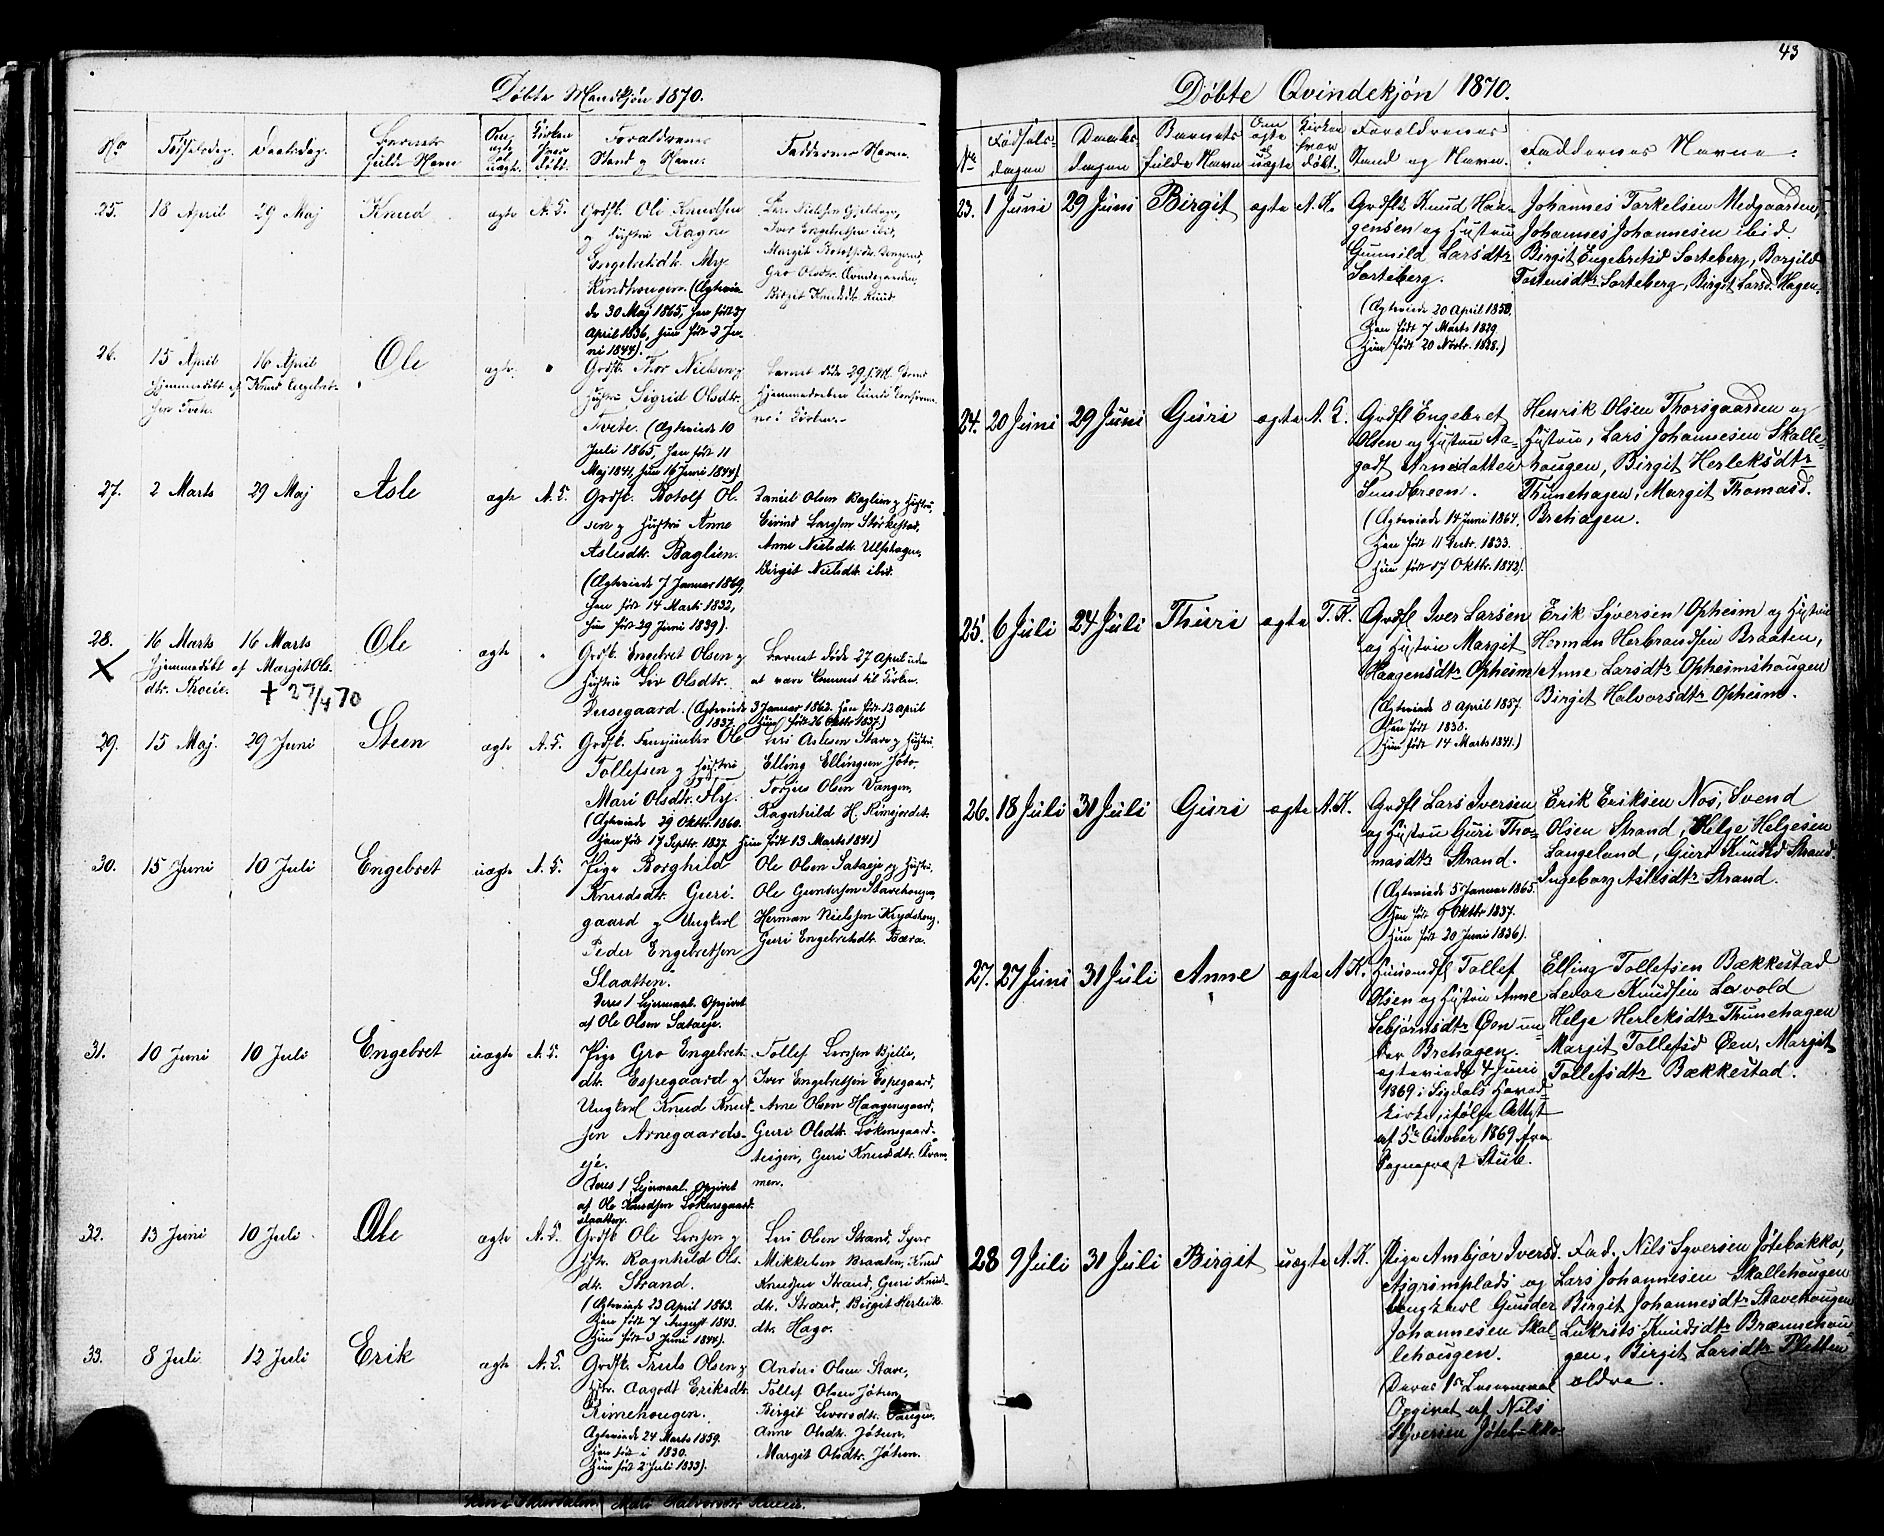 43
Døbte Mandkjøn 1870.
No
Fødselsdag.
Daabsdag.
Barnets fulde Navn
Om ægte el. uægte.
Kirken hvor døbt.
Forældrenes Stand og Navn.
Faddernes Navne.
25.
18 April
29 Maj
Knud
ægte
A. K.
Grdbr. Ole Knudsen
og Hustru Ragne
Engebretsdtr. Mykindhougen. (Ægteviede
30 Maj 1865, han født 27
April 1836, hun født 2 Juni
1844).
Iver Engebretsen ibid,
Birgit Knudsdtr. Ruud
26.
15 April
16 April
Ole
ægte
Hjemmedøbt af Knud Engebretsen Tvete.
Grdbr. Thor Nielsen og
Hustru Sigrid Olsdtr.
Tvete. (Ægteviede 10
Juli 1865, han født 11
Maj 1841, hun 16 Juni 1844)
27.
2 Marts
29 Maj
Asle
ægte
A. K.
Grdbr. Botolf Olsen
og Hustru Anne
Aslesdtr. Baglien.
(Ægteviede 7 Januar 1869,
han født 14 Marts 1832,
hun født 29 Juni 1839).
Daniel Olsen Baglien og Hustru,
Eivind Larssen Størkestad,
Anne Nielsdtr. Ulfshagen,
Birgit Nielsdtr. ibid.
28.
16 Marts
16 Marts
Ole
ægte
Hjemmedøbt af Margit Olsdtr. Thoeie.
+ 27/4 70
Grdbr. Engebret Olsen og
Hustru Liv Olsdtr.
(Ægteviede 3 Januar 1862. Han født 12 April
1837. Hun født 26 Oktbr. 1837.)
Barnet døde 27 April uden
at være kommet til Kirken.
29.
15 Maj.
29 Juni
Steen
ægte
A. K.
Tollefsen og Hustru
Mari Olsdtr. Fly.
(Ægteviede 29 Oktbr. 1860.
Han født 17 Septbr. 1837 Hun født 13 Marts 1841)
Elling Ellingsen Jøto,
Torjus Olsen Vangen,
Ragnhild H. Rimejordet.
30.
15 Juni
10 Juli
Engebret
uægte
A. K.
Pige Borghild
Knudsdtr. Gurigaard
og Ungkarl
Peder Engebretsen
Slaatten.
Deres 1 Lejermaal. Opgivet
af Ole Olsen Sataeje.
Ole Olsen Sataeje og Hustru,
Ole Gundersen Stavehougen,
Guri Engebretsdtr. Bæra.
31.
10 Juni
10 Juli
Engebret
uægte
A. K.
Pige Gro Engebretsdtr.
Espegaard og
Ungkarl Knud Knudsen
Arnegaardseje.
Deres 1 Lejermaal. Opgivet
af Ole Knudsen Løkensgaardslaatten.
Tollef Larssen Bjella,
Iver Engebretsen Espegaard,
Arne Olsen Haagensgaard,
Guri Olsdtr. Løkensgaardteigen,
32.
13 Juni
10 Juli
Ole
ægte
A. K.
Grdbr. Ole Larssen og
Hstr. Ragnhild Olsdtr.
Strand.
(Ægteviede 23 April 1863.
Han født 7 August 1843.
Hun født 3 Juni 1844).
Mikkelsen Braaten, Knud
Knudsen Strand, Guri Knudsdtr.
Strand, Birgit Herleiksdtr.
Hago.
33.
8 Juli
12 Juli
Erik
ægte
A. K.
Grdbr. Truls Olsen og
Hstr. Aagodt Eriksdtr.
Rimehougen.
Ægteviede 24 Marts 1859.
Han født i 1830.
Hun født 2 Juli 1833).
Anders Olsen Stave,
Tollef Olsen Jøtun,
Anne Olsdtr. Jøtun,
Margit Olsdtr. Jøtun.
Døbte Qvindekjøn 1870.
No
Fødselsdagen
Daabsdagen
Barnets fulde Navn
Om ægte el uægte
Kirken hvor døbt.
Forældrenes Stand og Navn.
Faddernes Navne.
23.
1 Juni
29 Juni
Birgit
ægte
A. K.
Grdbr Knud Haagensen
og Hustru
Gunnild Larsdtr
Sorteberg.
(Ægteviede 20 April 1858.
Han født 7 Marts 1829
Hun født 20 Novbr. 1838.)
Johannes Torkelsen Medgaarden,
Johannes Johannesen ibid.
Birgit Engebretsd Sorteberg, Borgild
Tostensdtr Sorteberg, Birgit Larsd. Hagen.
24.
20 Juni
29 Juni
Guri
ægte
A. K.
Grdbr Engebret
Olsen og Hustru Aagodt
Arnesdatter
Sundbreen.
(Ægteviede 14 Juni 1864.
Han født 11 Decbr. 1833.
Hun født 17 Oktbr. 1842)
Henrik Olsen Thorsgaarden og
Hustru, Lars Johannesen Skallehougen,
Birgit Herleksdtr
Thunehagen, Margit Thomasd.
Brehagen.
25.
6 Juli
24 Juli
Thuri
ægte
T. K.
Grdbr Iver Larsen
og Hustru Margit
Haagensdtr Opheim
(Ægteviede 8 April 1857.
Han født 1838.
Hun født 14 Marts 1841.)
Erik Syversen Opheim og Hustru
Herman Herbrandsen Braaten,
Anne Larsdtr Opheimshougen
Birgit Halvorsdtr Opheim.
26.
18 Juli
31 Juli
Guri
ægte
A. K.
Grdbr Lars Iversen
og Hustru Guri Thomasdtr
Strand.
(Ægteviede 5 Januar 1865.
Han født 9 Oktbr 1837.
Hun født 20 Juni 1836).
Erik Eriksen Nos, Svend
Olsen Strand, Helge Helgesen
Langeland, Guri Knudsd Strand
Ingeborg Aslesdtr Strand.
27.
27 Juni
31 Juli
Anne
ægte
A. K.
Huusmd Tollef
Olsen og Hustru Anne
Sebjørnsdtr Øen under
Brehagen.
ægteviede 4 Juni
1869 i Sigdals Hovedkirke,
ifølge Attest
af 5te October 1869 fra
Sognepræst Stub.
Elling Tollefsen Bækkestad
Levor Knudsen Lavold
Helge Herleksdtr Thunehagen
Margit Tollefsd Øen, Margit
Tollefsdtr Bækkestad.
28
9 Juli
31 Juli
Birgit
uægte
A. K.
Pige Ambjør Iversd.
Asgrimplads og
Ungkarl Gunder
Johannesen Skallehougen.
Deres 1ste Leiermaal
Opgivet af Nils
Syversen Jøtebakke
Fad. Nils Syversen Jøtebakke,
Lars Johannesen Skallehougen
Birgit Johannesdtr Stavehougen
Lukrits Knudsdtr Brænnehougen,
Birgit Larsdtr Pletten
ældre.